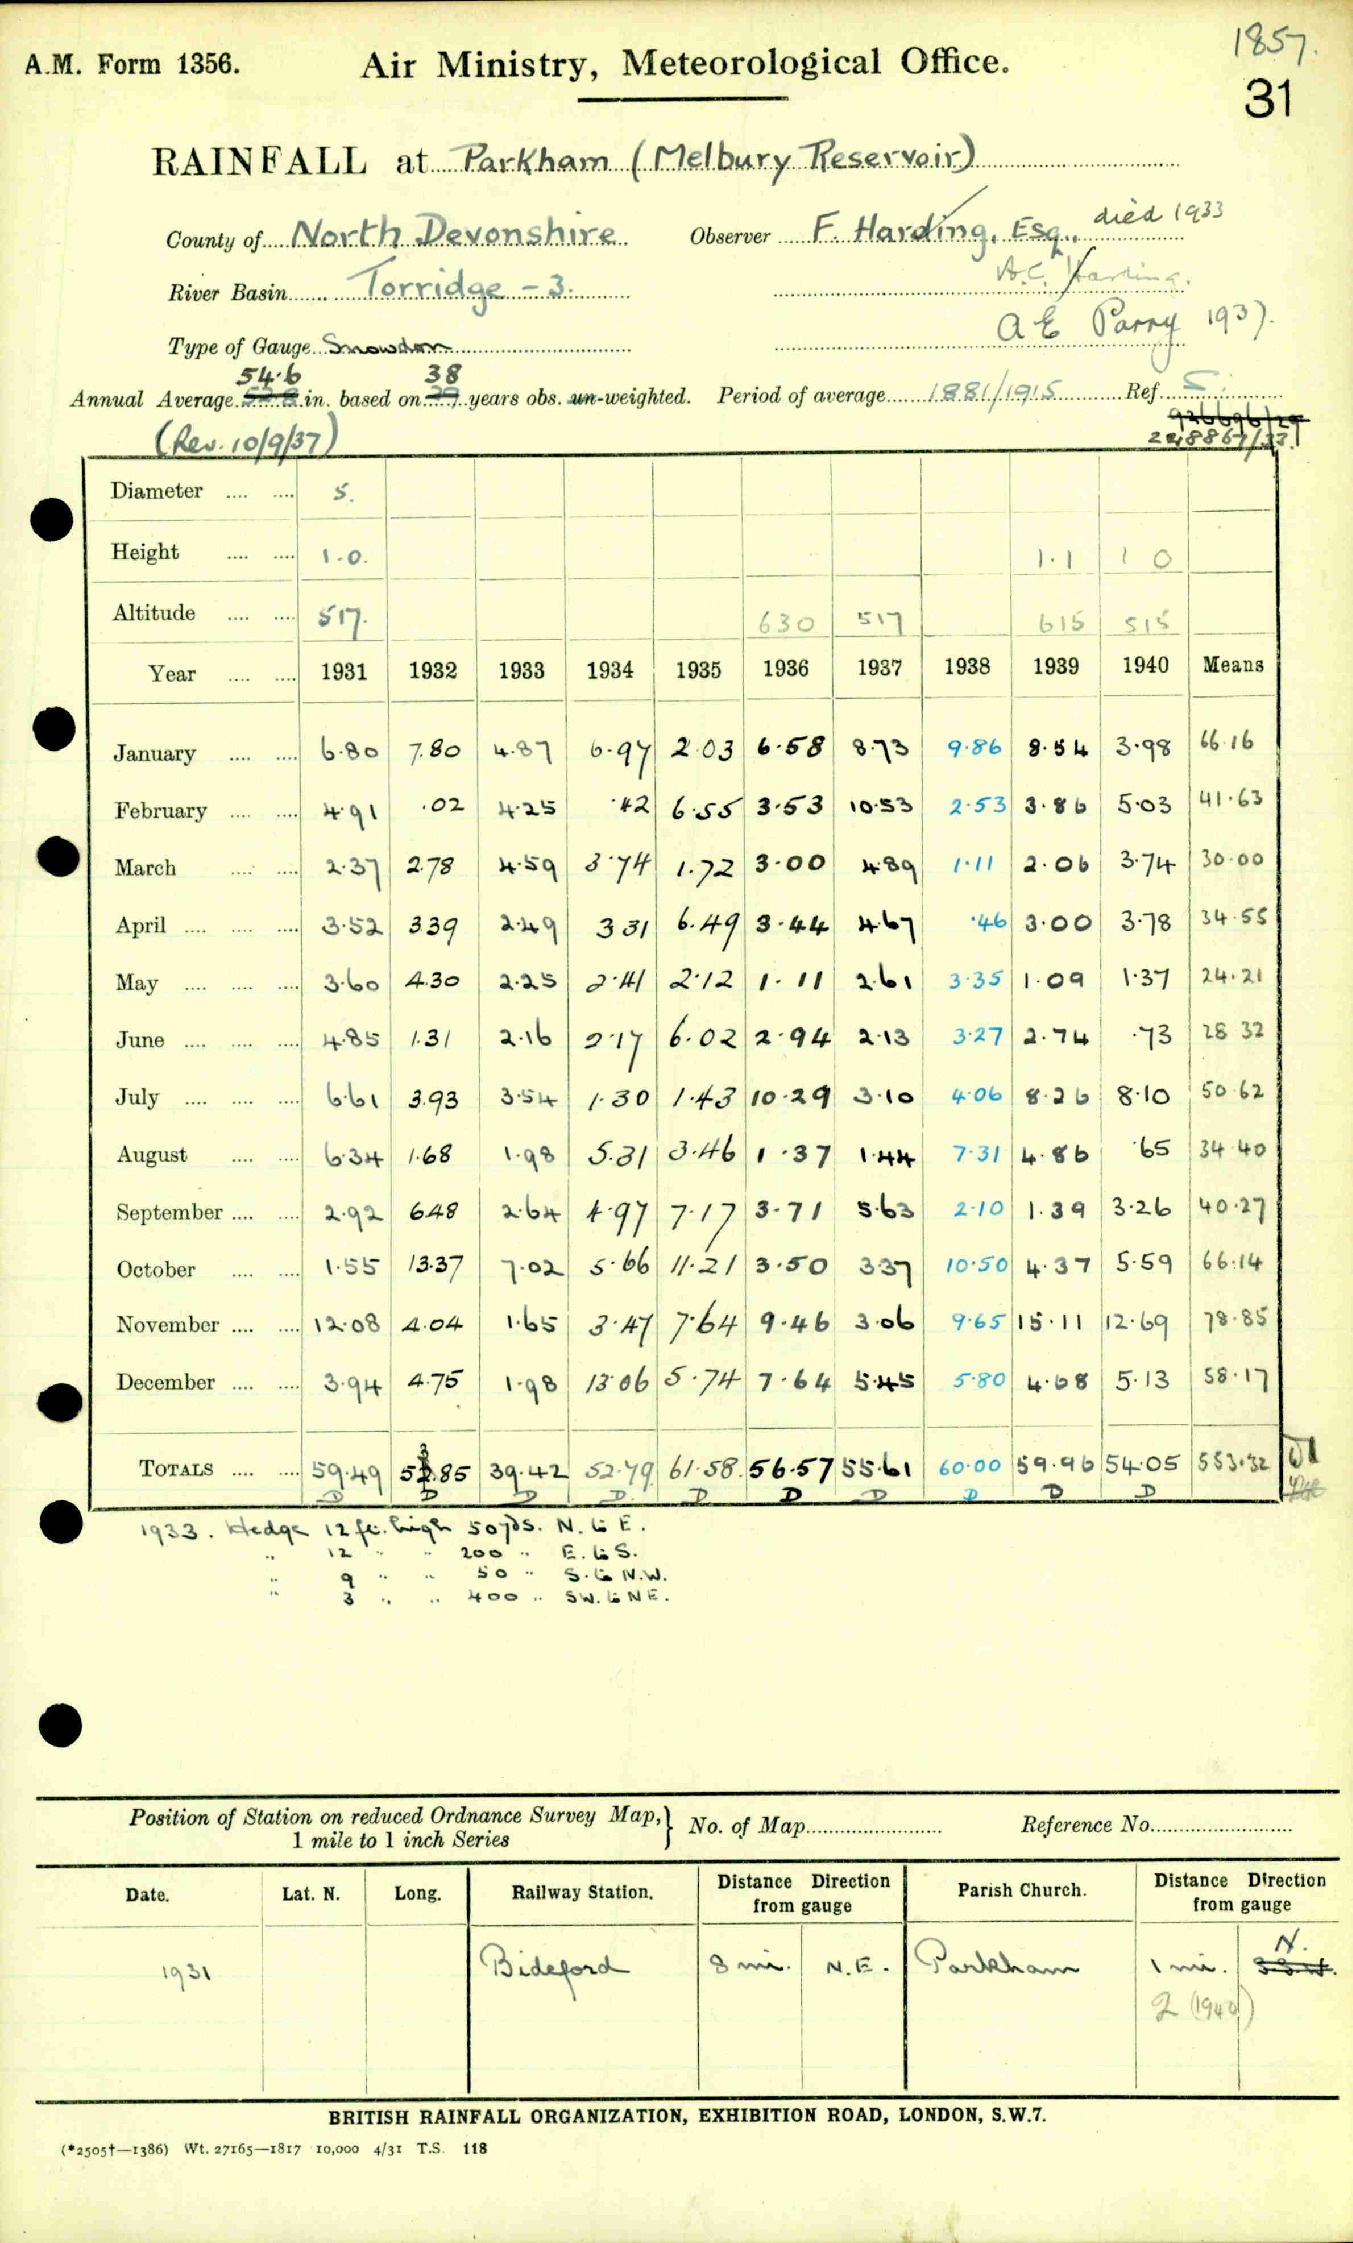 1857.
A.M. Form 1356. Air Ministry, Meteorological Office.
31
RAINFALL at Parkham (Melbury Reservoir)
County of North Devonshire Observer F. Harding, Esq., died 1933
River Basin Torridge - 3. A.C. Harding.
Type of Gauge Snowdon A E Parry 1937.
54.6 38
Annual Average in. based on years obs. un-weighted. Period of average 1881/1915 Ref. S.
926696/29
(Rev. 10/9/37) 228867/33
Diameter .... .... 5.
Height .... .... 1.0. 1.1 1 0
Altitude .... .... 517. 630 517 615 515
Year .... .... 1931 1932 1933 1934 1935 1936 1937 1938 1939 1940 Means
January .... .... 6.80 7.80 4.87 6.97 2.03 6.58 8.73 9.86 8.54 3.98 66.16
February .... .... 4.91 .02 4.25 .42 6.55 3.53 10.53 2.53 3.86 5.03 41.63
March .... .... 2.37 2.78 4.59 3.74 1.72 3.00 4.89 1.11 2.06 3.74 30.00
April .... .... .... 3.52 3.39 2.49 3 31 6.49 3.44 4.67 .46 3.00 3.78 34.55
May .... .... .... 3.60 4.30 2.25 2.41 2.12 1.11 2.61 3.35 1.09 1.37 24.21
June .... .... .... 4.85 1.31 2.16 2.17 6.02 2.94 2.13 3.27 2.74 .73 28 32
July .... .... .... 6.61 3.93 3.54 1.30 1.43 10.29 3.10 4.06 8.26 8.10 50 62
August .... .... 6.34 1.68 1.98 5.31 3.46 1.37 1.44 7.31 4.86 .65 34 40
September .... .... 2.92 6.48 2.64 4.97 7.17 3.71 5.63 2.10 1.39 3.26 40.27
October .... .... 1.55 13.37 7.02 5.66 11.21 3.50 3.37 10.50 4.37 5.59 66.14
November .... .... 12.08 4.04 1.65 3.47 7.64 9.46 3.06 9.65 15.11 12.69 78.85
December .... .... 3.94 4.75 1.98 13.06 5.74 7.64 5.45 5.80 4.68 5.13 58.17
TOTALS .... .... 59.49 53.85 39.42 52.79 61.58 56.57 55.61 60.00 59.96 54.05 553.32
D D D D D D D D D D
1933. Hedge 12 ft. high 50 yds. N. to E.
" 12 " " 200 " E. to S.
" 9 " " 50 " S. to N.W.
" 3 " " 400 " SW. to NE.
Position of Station on reduced Ordnance Survey Map, } No. of Map Reference No.
1 mile to 1 inch Series
Date. Lat. N. Long. Railway Station. Distance Direction from gauge Parish Church. Distance Direction from gauge
N.
1931 Bideford 8 mi. N.E. Parkham 1 mi.
2 (1940)
BRITISH RAINFALL ORGANIZATION, EXHIBITION ROAD, LONDON, S.W.7.
(*2505†—1386) Wt. 27165—1817 10,000 4/31 T.S. 118